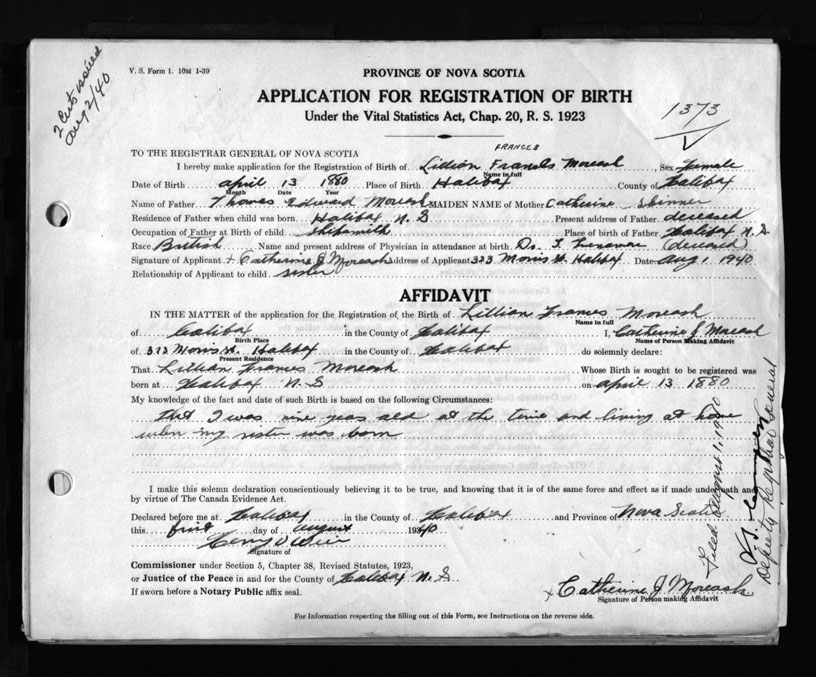 2 Certs issued
Aug 2/40
V. S. Form 1. 10M 1-39
PROVINCE OF NOVA SCOTIA
APPLICATION FOR REGISTRATION OF BIRTH
Under the Vital Statistics Act, Chap. 20, R. S. 1923
1373
FRANCES
TO THE REGISTRAR GENERAL OF NOVA SCOTIA
I hereby make application for the Registration of Birth of Lillian Francis Moreash, Sex Female
Name in full
Date of Birth april 13 1880 Place of Birth Halifax County of Halifax
Month Date Year
Name of Father Thomas Edward Moreash MAIDEN NAME of Mother Catherine Skinner
Residence of Father when child was born Halifax N. S Present address of Father deceased
Occupation of Father at Birth of child Place of birth of Father Halifax N. S.
Race British Name and present address of Physician in attendance at birth Dr. (deceased)
Signature of Applicant + Catherine J Moreash Address of Applicant 323 Morris St. Halifax Date Aug 1 1940
Relationship of Applicant to child sister
AFFIDAVIT
IN THE MATTER of the application for the Registration of the Birth of Lillian Frances Moreash
Name in full
of Halifax in the County of Halifax I, Catherine J Moreash
Birth Place Name of Person Making Affidavit
of 323 Morris St. Halifax in the County of Halifax do solemnly declare:
Present Residence
That Lillian Frances Moreash Whose Birth is sought to be registered was
born at Halifax N. S on april 13 1880
My knowledge of the fact and date of such Birth is based on the following Circumstances:
that I was nine years old at the time and living at home
when my sister was born
I make this solemn declaration conscientiously believing it to be true, and knowing that it is of the same force and effect as if made under oath and
by virtue of The Canada Evidence Act.
Declared before me at Halifax in the County of Halifax and Province of Nova Scotia
this first day of august 1940
Signature of
Commissioner under Section 5, Chapter 38, Revised Statutes, 1923,
or Justice of the Peace in and for the County of Halifax N. S.
If sworn before a Notary Public affix seal.
x Catherine J. Moreash
Signature of Person making Affidavit
For Information respecting the filling out of this Form, see Instructions on the reverse side.
Filed August 1, 1940
Deputy Registrar General